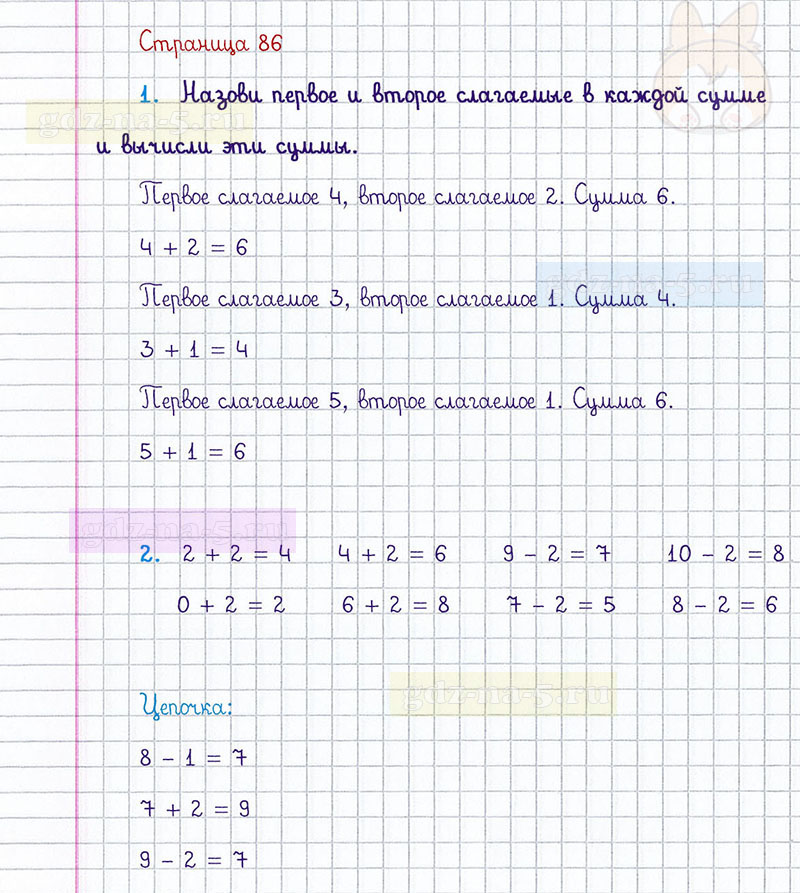 Страница 86
1. Назови первое и второе слагаемые в каждой сумме
gdz-na-5.ru
и вычисли эти суммы.
Первое слагаемое 4, второе слагаемое 2. Сумма 6.
4 + 2 = 6
gdz-na-5.ru
Первое слагаемое 3, второе слагаемое 1. Сумма 4.
3 + 1 = 4
Первое слагаемое 5, второе слагаемое 1. Сумма 6.
5 + 1 = 6
gdz-na-5.ru
2. 2 + 2 = 4 4 + 2 = 6 9 - 2 = 7 10 - 2 = 8
0 + 2 = 2 6 + 2 = 8 7 - 2 = 5 8 - 2 = 6
gdz-na-5.ru
Цепочка:
8 - 1 = 7
7 + 2 = 9
9 - 2 = 7